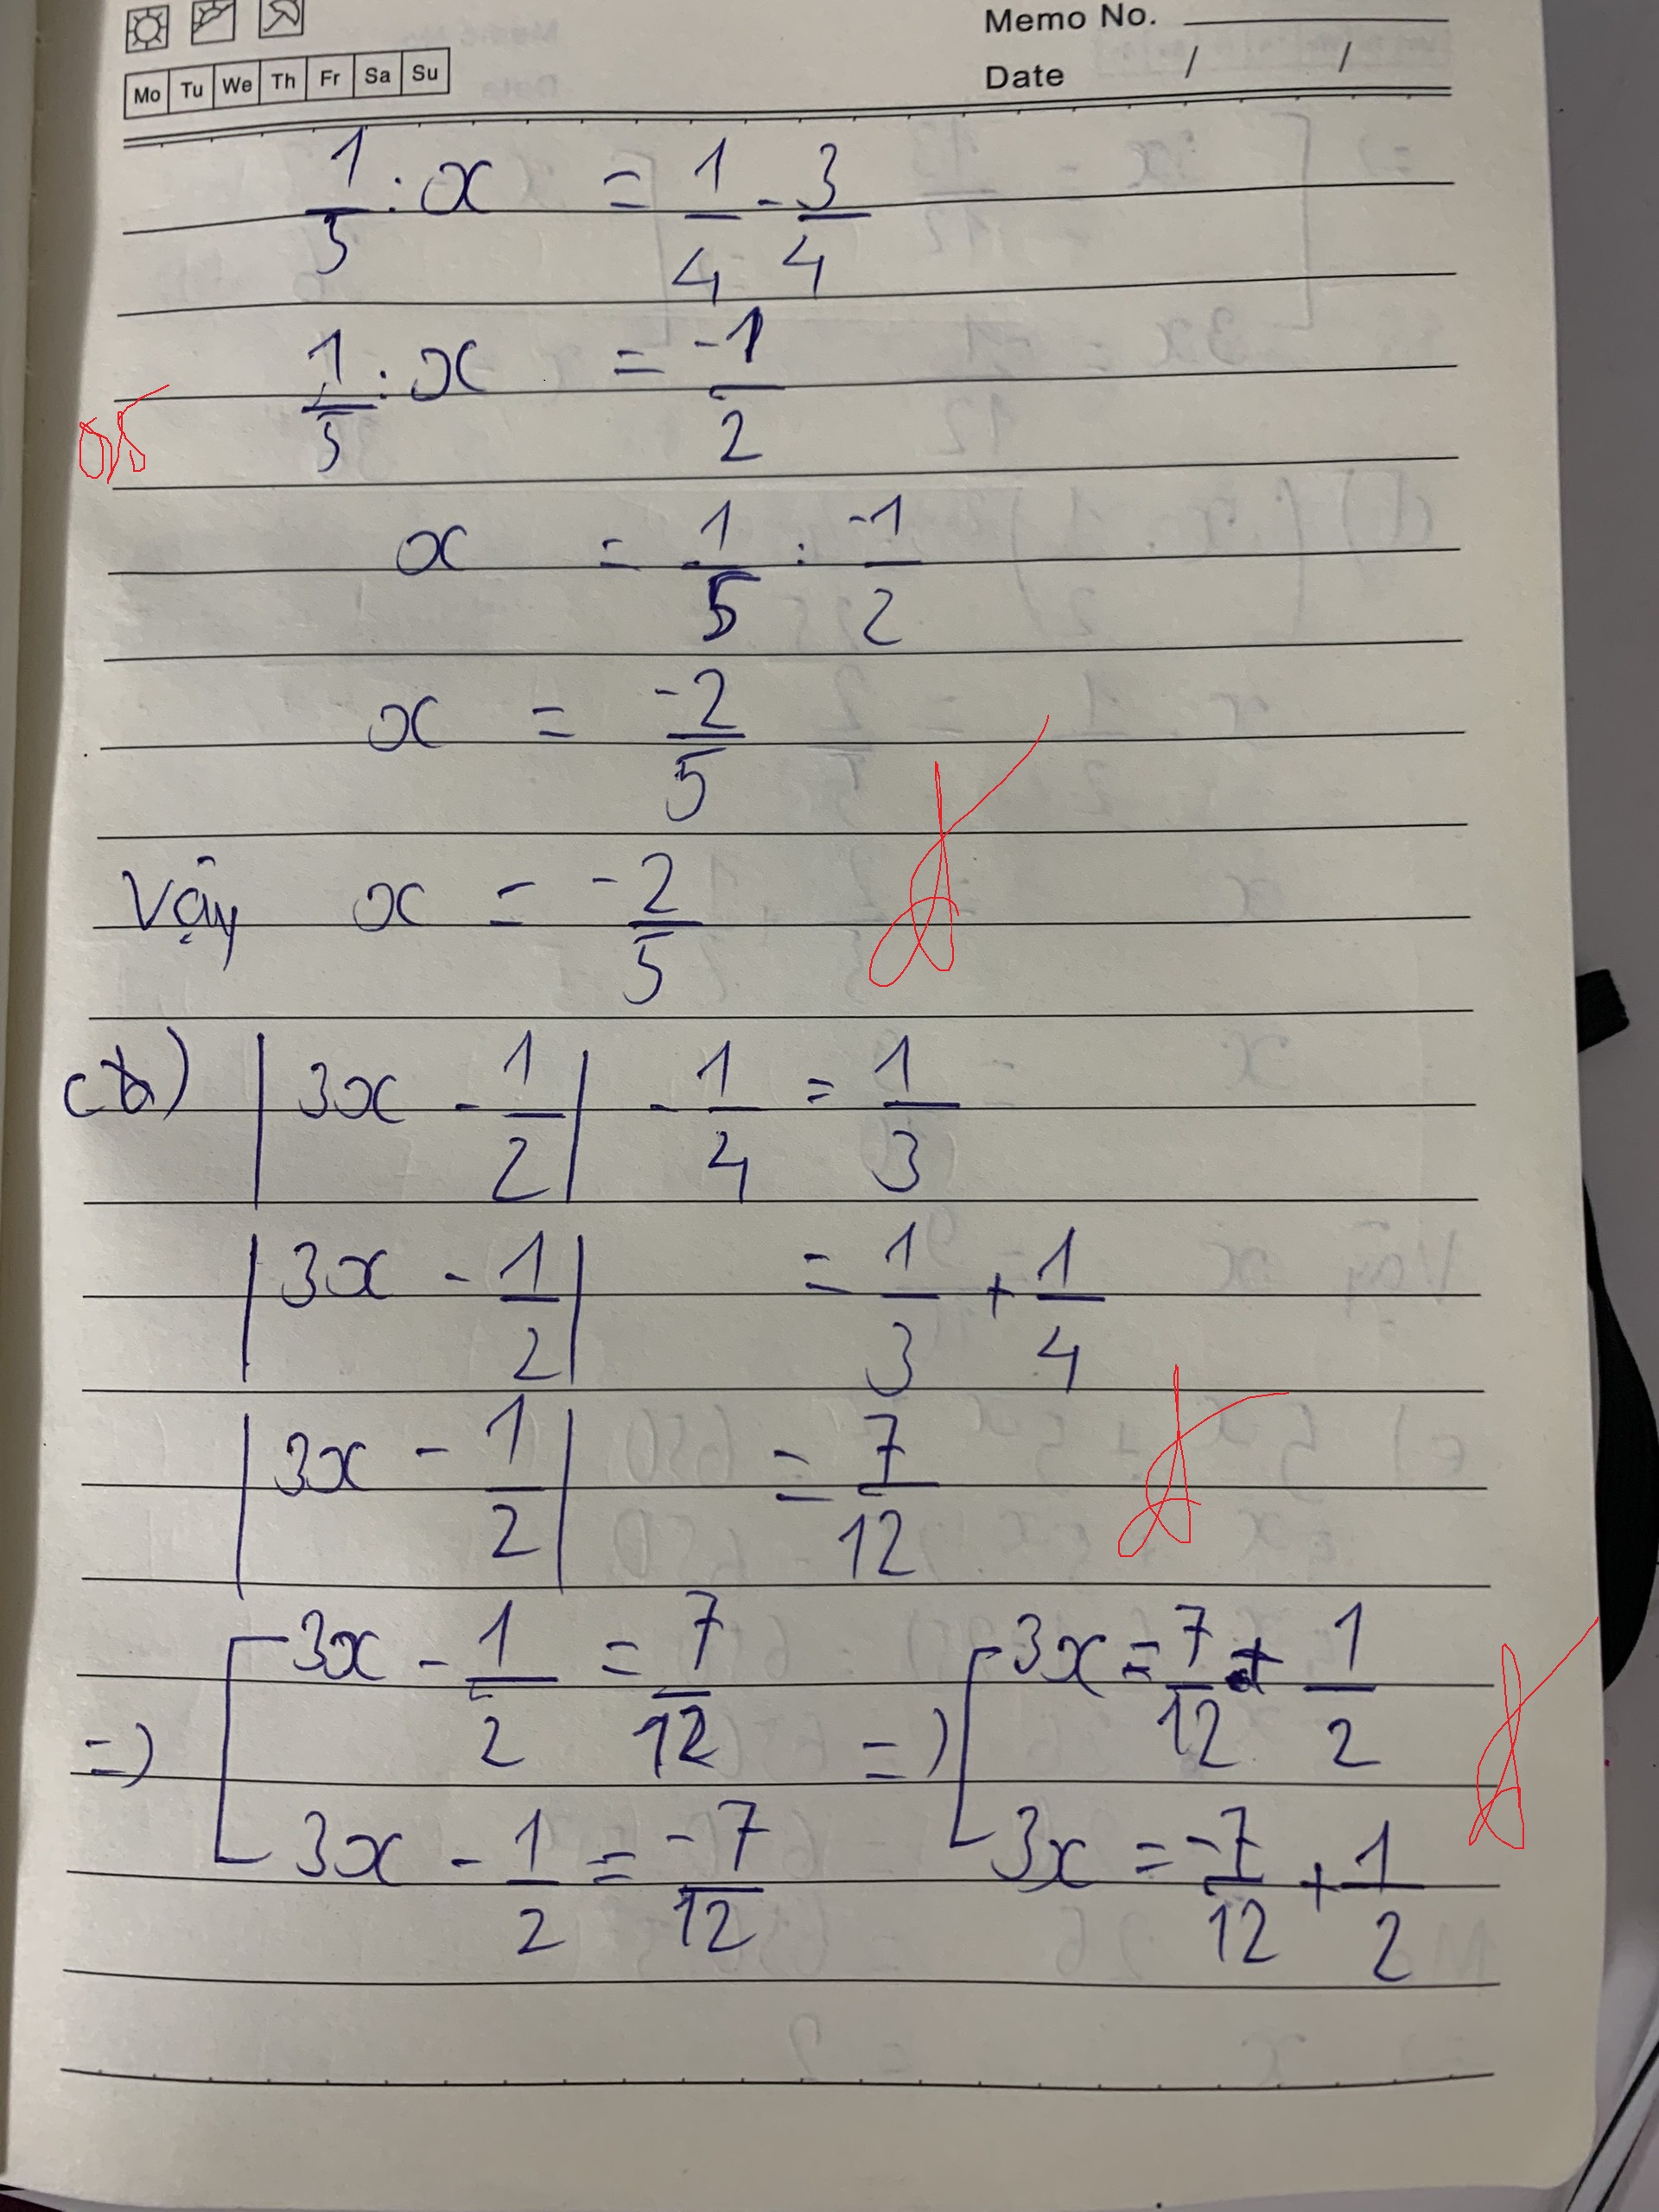 Memo No.
Mo Tu We Th Fr Sa Su
Date / /
1/5 : x = 1/4 - 3/4
1/5 : x = -1/2
x = 1/5 : -1/2
x = -2/5
Vậy x = -2/5
c) |3x - 1/2| - 1/4 = 1/3
|3x - 1/2| = 1/3 + 1/4
|3x - 1/2| = 7/12
=) [ 3x - 1/2 = 7/12 =) [ 3x = 7/12 + 1/2
3x - 1/2 = -7/12 3x = -7/12 + 1/2